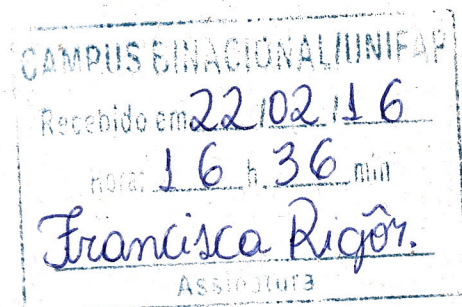 CAMPUS BINACIONAL/UNIFAP
Recebido em 22/02/16
Hora: 16 h 36 min
Francisca Rigôr.
Assinatura